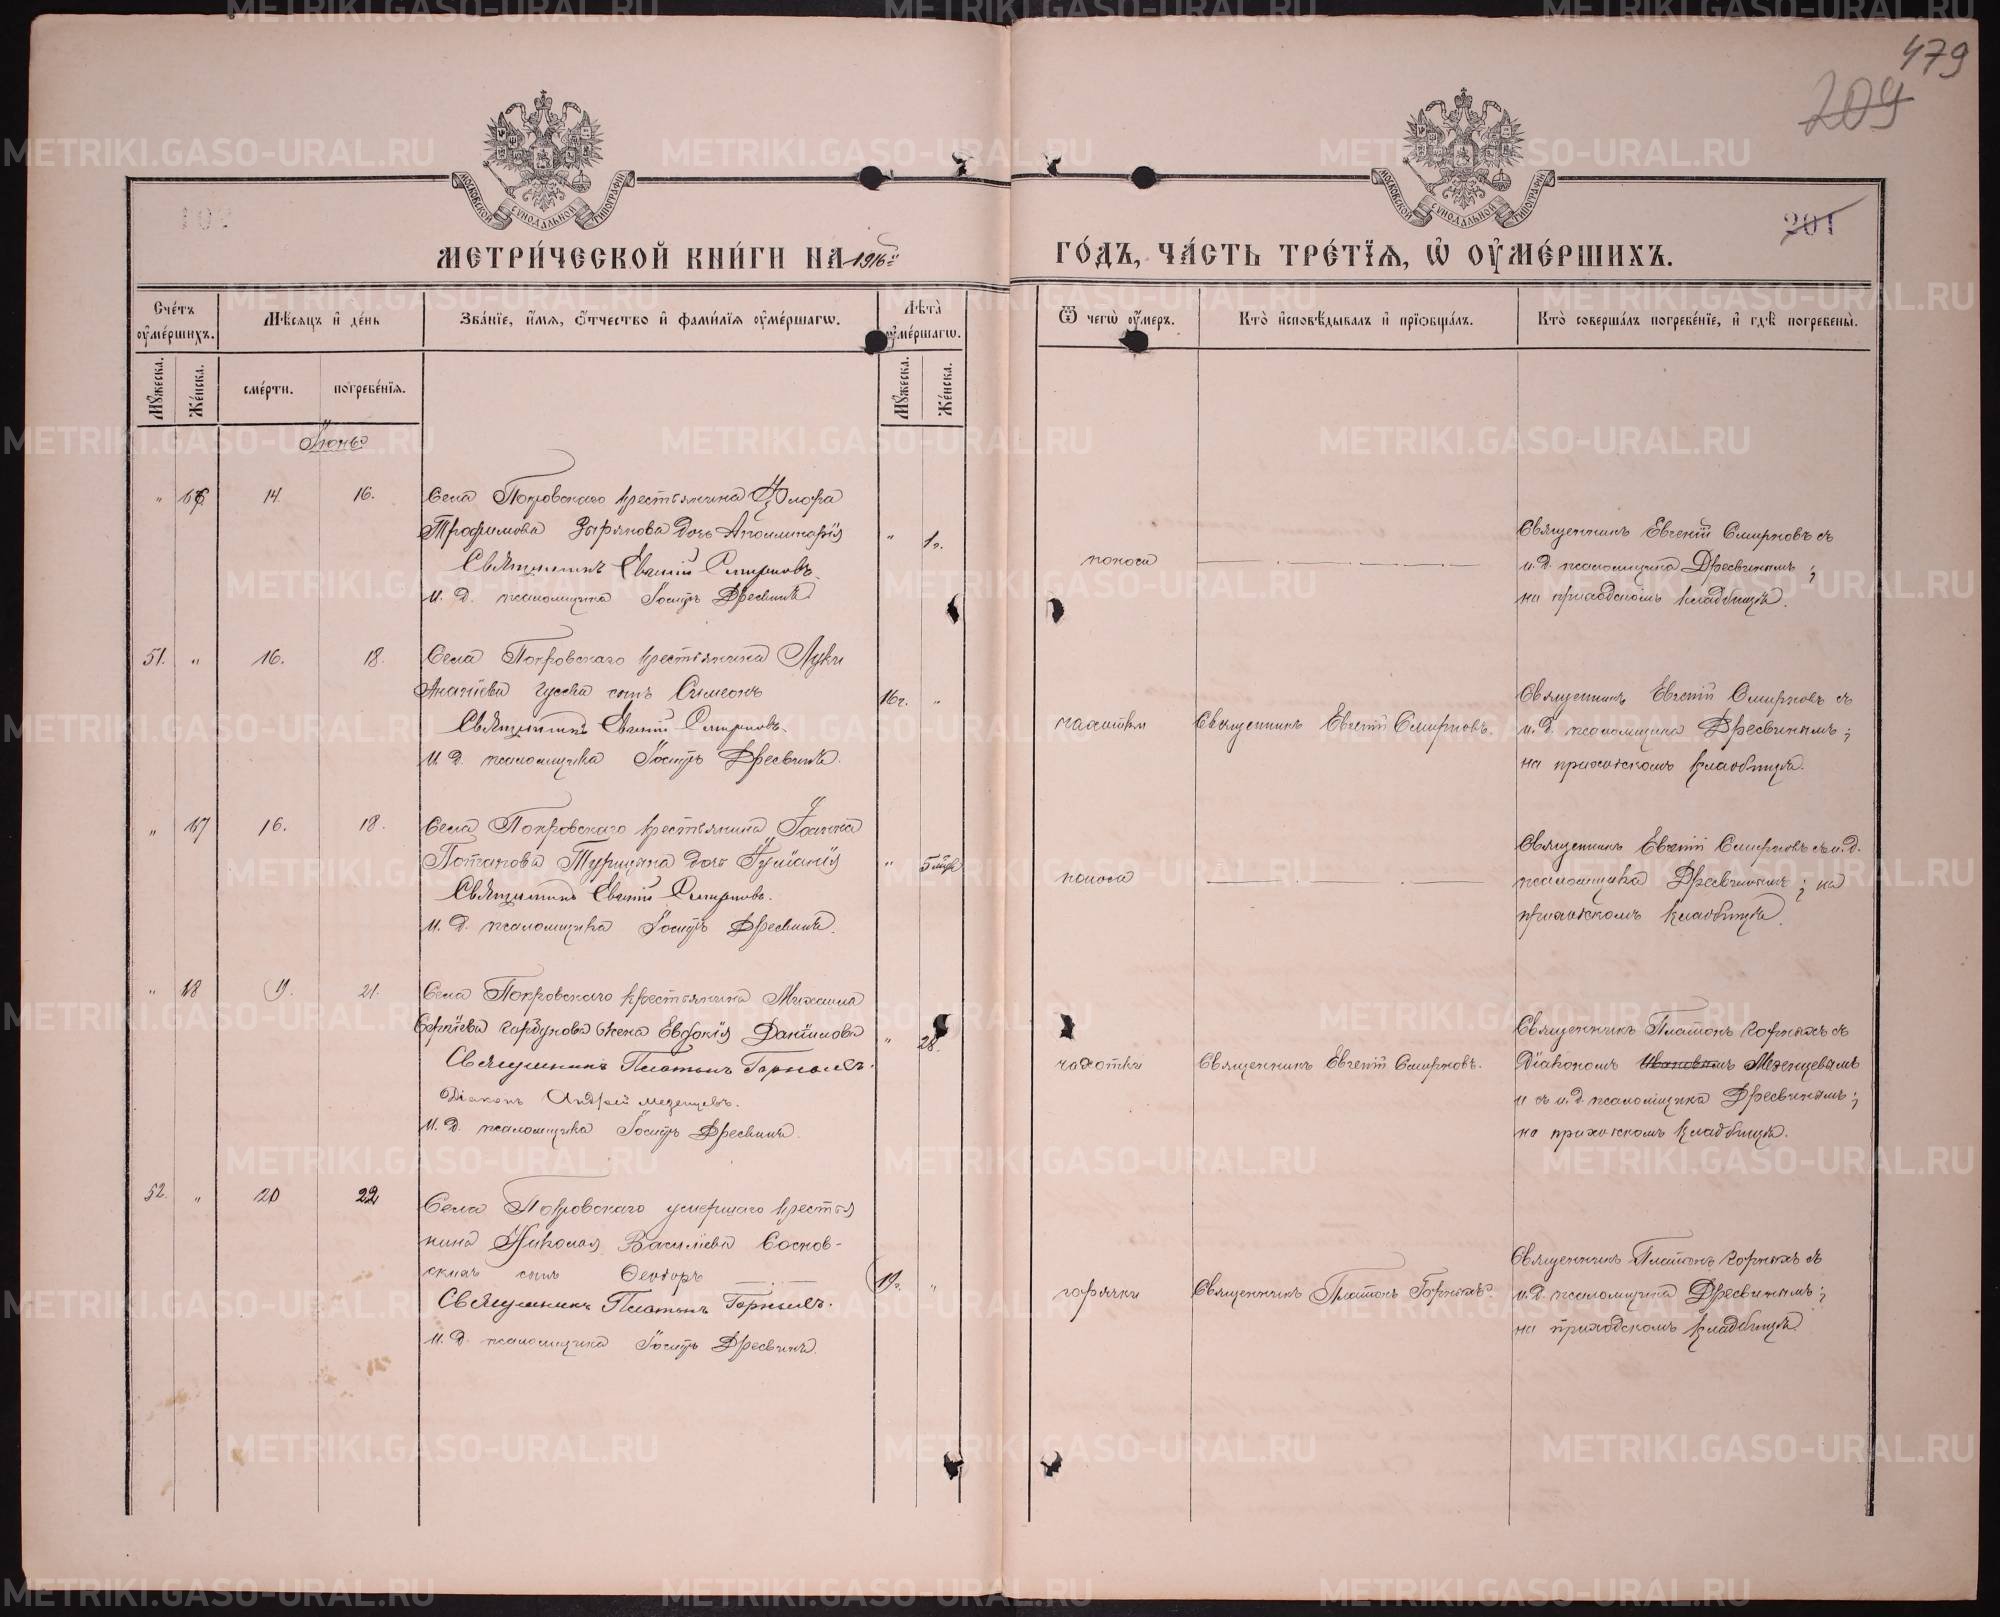 479
209
201
МОСКОВСКОЙ СѴНОДАЛЬНОЙ ТИПОГРАФІИ
МОСКОВСКОЙ СѴНОДАЛЬНОЙ ТИПОГРАФІИ
МЕТРИ́ЧЕСКОЙ КНИ́ГИ НА 1916й ГО́ДЪ, ЧА́СТЬ ТРЕ́ТІѦ, Ѡ҆ ОУ҆МЕ́РШИХЪ.
Сче́тъ оу҆ме́ршихъ.
Мѣсяцъ и҆ де́нь
Зва́нїе, и҆́мѧ, ѻ҆́тчество и҆ фами́лїѧ оу҆ме́ршагѡ.
Лѣта̀ оу҆ме́ршагѡ.
Ѿ чегѡ̀ оу҆́меръ.
Кто̀ и҆сповѣ́дывалъ и҆ прїѡбща́лъ.
Кто̀ соверша́лъ погребе́нїе, и҆ гдѣ̀ погребены̀.
Мꙋ́жеска. Же́нска. сме́рти. погребе́нїѧ. Мꙋ́жеска. Же́нска.
Іюнь
" 14. 16. Села Покровскаго крестьянина Флора
Трофимова Зырянова дочь Аполинарія " 1 г.
Священникъ Евгеній Смирновъ.
И. д. псаломщика Іосифъ Дресвинъ
поноса
Священникъ Евгеній Смирновъ съ
и. д. псаломщика Дресвинымъ;
на приходскомъ кладбищѣ.
51. " 16. 18. Села Покровскаго крестьянина Луки
Ананіева Гусева сынъ Симеонъ 16 г. "
Священникъ Евгеній Смирновъ.
И. д. псаломщика Іосифъ Дресвинъ.
чахотки
Священникъ Евгеній Смирновъ.
Священникъ Евгеній Смирновъ съ
и. д. псаломщика Дресвинымъ;
на приходскомъ кладбищѣ.
" 47 16. 18. Села Покровскаго крестьянина Іоанна
Потапова Турицына дочь Іуліанія " 5 мѣс
Священникъ Евгеній Смирновъ.
И. д. псаломщика Іосифъ Дресвинъ.
поноса
Священникъ Евгеній Смирновъ съ и. д.
псаломщика Дресвинымъ; на
приходскомъ кладбищѣ.
" 48 19. 21. Села Покровскаго крестьянина Михаила
Сергіева Горбунова жена Евдокія Даніилова " 28.
Священникъ Платонъ Горныхъ.
Діаконъ Андрей Мезенцевъ.
И. д. псаломщика Іосифъ Дресвинъ.
чахотки
Священникъ Евгеній Смирновъ.
Священникъ Платонъ Горныхъ съ
Діакономъ Ивановымъ Мезенцевымъ
и съ и. д. псаломщика Дресвинымъ;
на приходскомъ кладбищѣ.
52. " 20 22 Села Покровскаго умершаго крестья
нина Николая Василіева Соснов-
скихъ сынъ Ѳеодоръ 19 г. "
Священникъ Платонъ Горныхъ.
И. д. псаломщика Іосифъ Дресвинъ.
горячки
Священникъ Платонъ Горныхъ.
Священникъ Платонъ Горныхъ съ
и. д. псаломщика Дресвинымъ;
на приходскомъ кладбищѣ.
METRIKI.GASO-URAL.RU